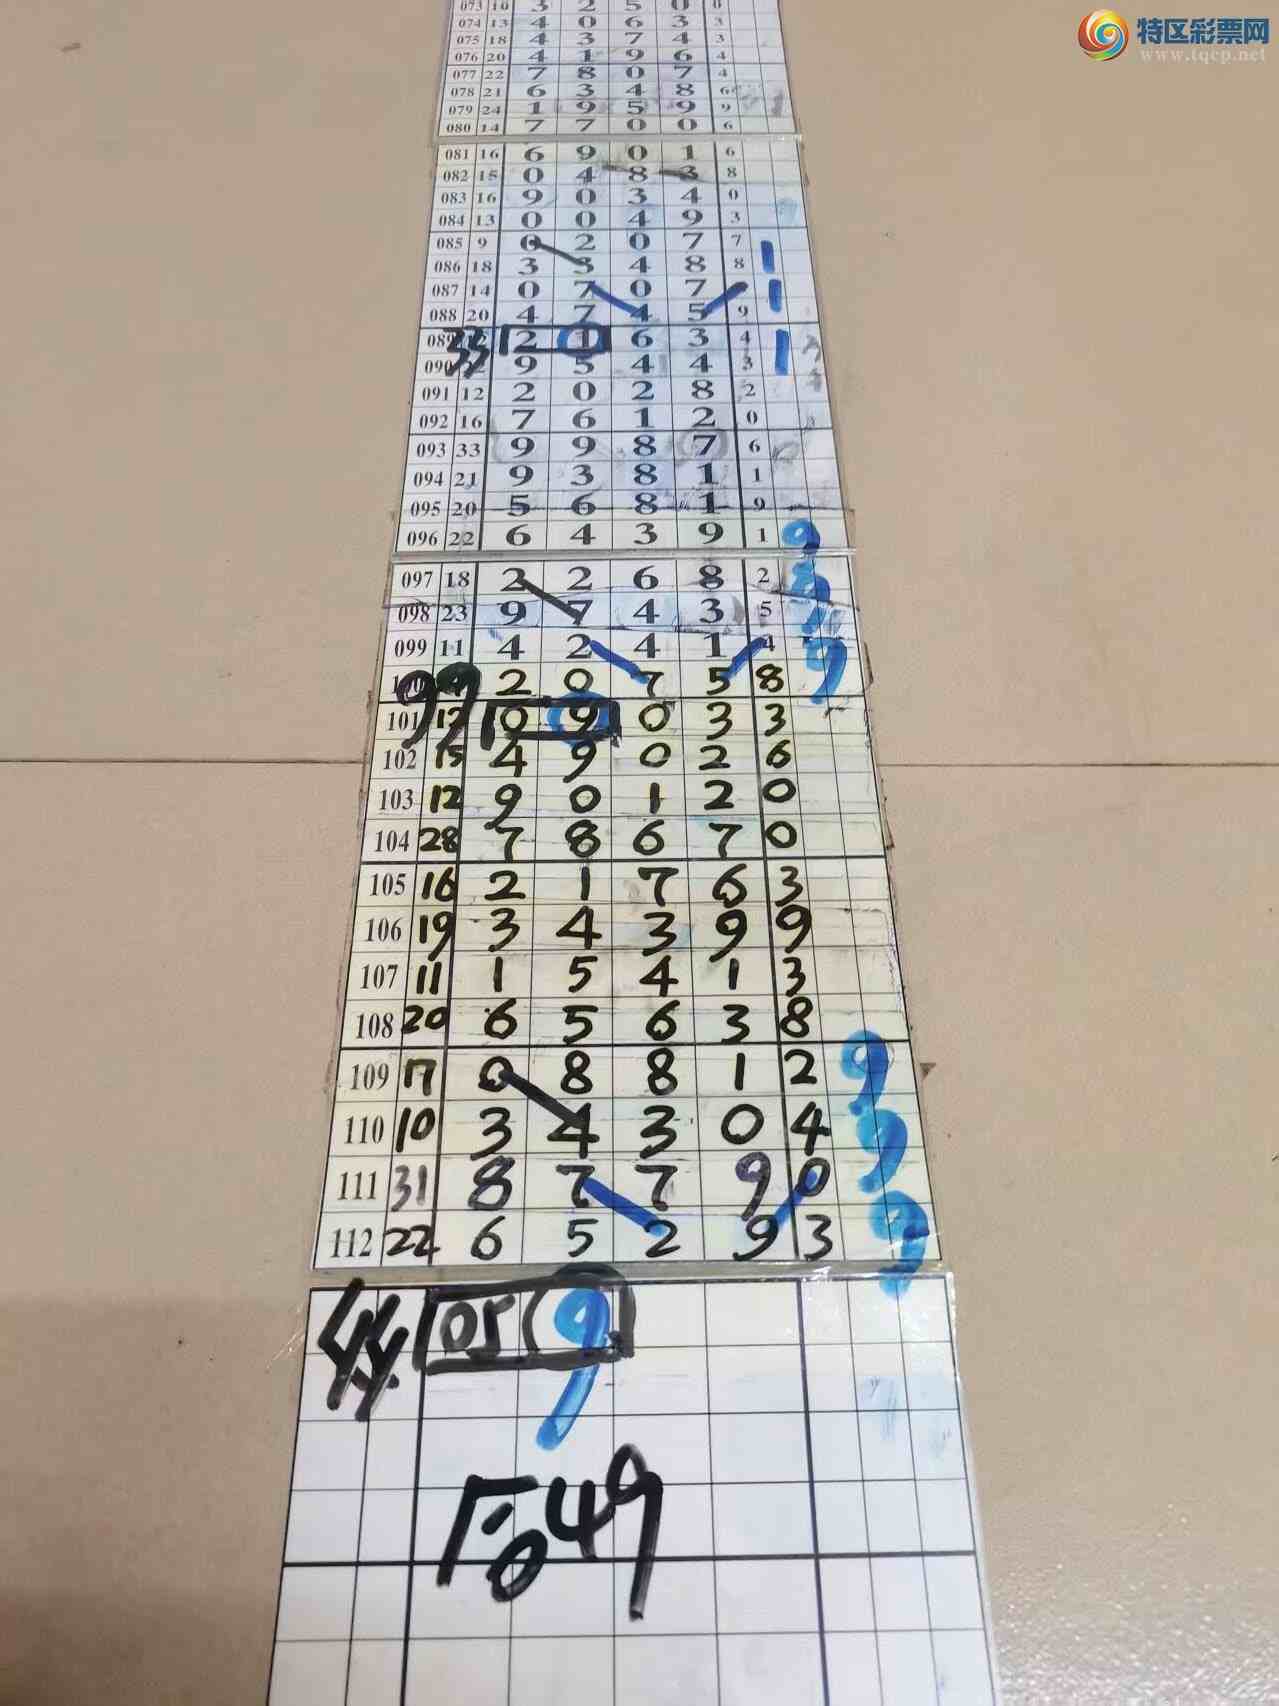 特区彩票网
www.tqcp.net
073 10 3 2 5 0 0
074 13 4 0 6 3 3
075 18 4 3 7 4 3
076 20 4 1 9 6 4
077 22 7 8 0 7 4
078 21 6 3 4 8 6
079 24 1 9 5 9 9
080 14 7 7 0 0 6
081 16 6 9 0 1 6
082 15 0 4 8 3 8
083 16 9 0 3 4 0
084 13 0 0 4 9 3
085 9 0 2 0 7 7
086 18 3 3 4 8 8 1
087 14 0 7 0 7 1
088 20 4 7 4 5 9
089 33 2 1 6 3 4 1
090 9 5 4 4 3
091 12 2 0 2 8 2
092 16 7 6 1 2 0
093 33 9 9 8 7 6
094 21 9 3 8 1 1
095 20 5 6 8 1 9
096 22 6 4 3 9 1 9
097 18 2 2 6 8 2 9
098 23 9 7 4 3 5
099 11 4 2 4 1 4 9
99 2 0 7 5 8
101 12 0 9 0 3 3
102 15 4 9 0 2 6
103 12 9 0 1 2 0
104 28 7 8 6 7 0
105 16 2 1 7 6 3
106 19 3 4 3 9 9
107 11 1 5 4 1 3
108 20 6 5 6 3 8
109 17 0 8 8 1 2 9
110 10 3 4 3 0 4 9
111 31 8 7 7 9 0
112 22 6 5 2 9 3 9
44 05 9
后49